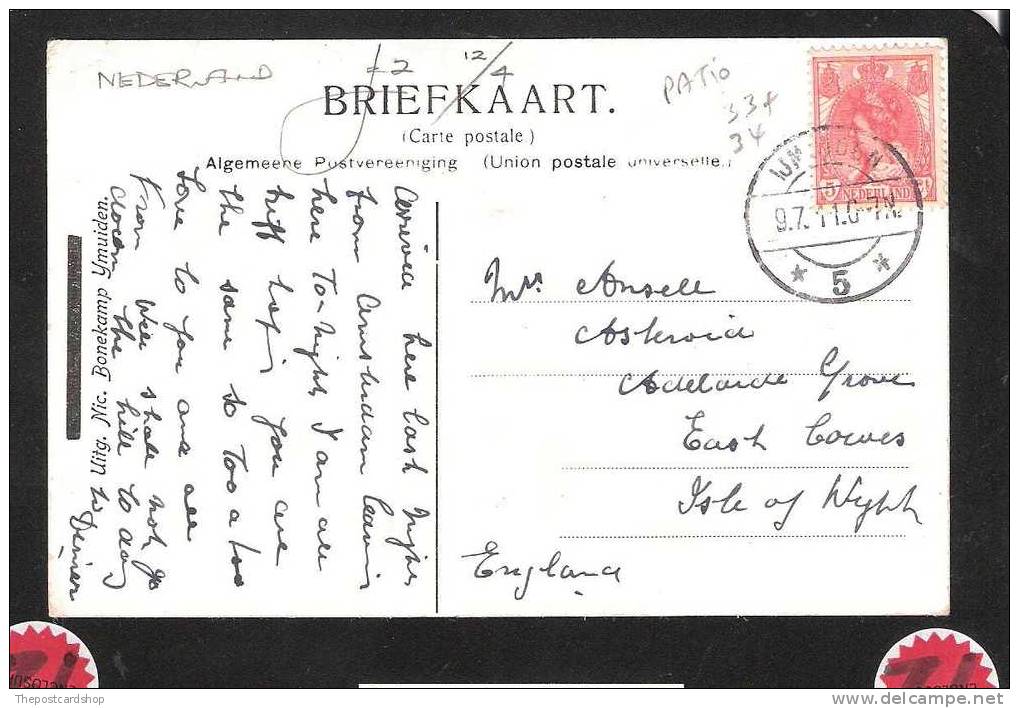 NEDERLAND
£2
12/4
PATIO
33+
34
BRIEFKAART.
(Carte postale)
Algemeene Postvereeniging (Union postale universelle.)
IJMUIDEN
5
9.7.11.6-7N
* 5 *
5 NEDERLAND
Arrived here last night
from Amsterdam leaving
here To-night I am all
hoping you are
the same So Too a loo
Love to you and all
From Wee shall not go
down the hill to day
to Dinner
Uitg. Nic. Bonekamp Ymuiden.
Mrs Ansell
Adelaide Grove
East Cowes
Isle of Wight
England
Thepostcardshop
www.delcampe.net